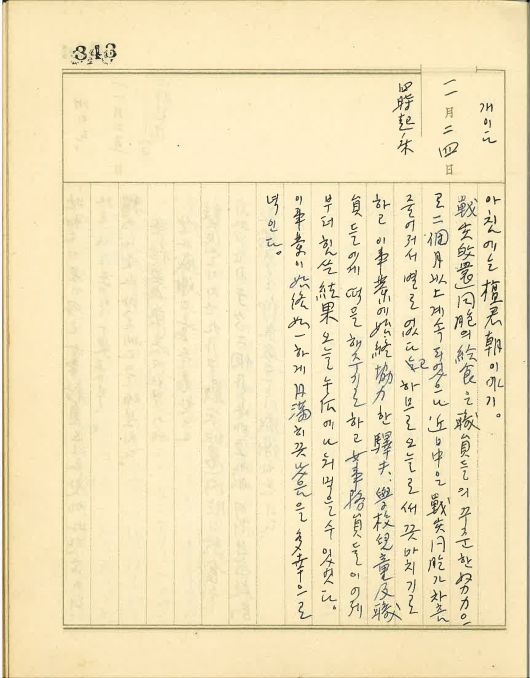 346
개이다
二月二四日
四時起床
아침에는 檀君朝이야기。
戰災歸還同胞의 給食은 職員들의 꾸준한 努力으
로 二個月以上 계속되였으나 近日中은 戰災同胞가 차츰
줄어저서 별로 없다고 하므로 오늘로써 끗마치기로
하고 이事業에 始終協力한 驛夫、學校兒童及職
員들에게 떡을 해주기로 하고 女事務員들이 어제
부터 힘쓴 結果 오늘 午后에 나눠먹을 수 있었다。
이事業이 始終如一하게 円滿히 끗맞음을 多幸으로
녁인다。